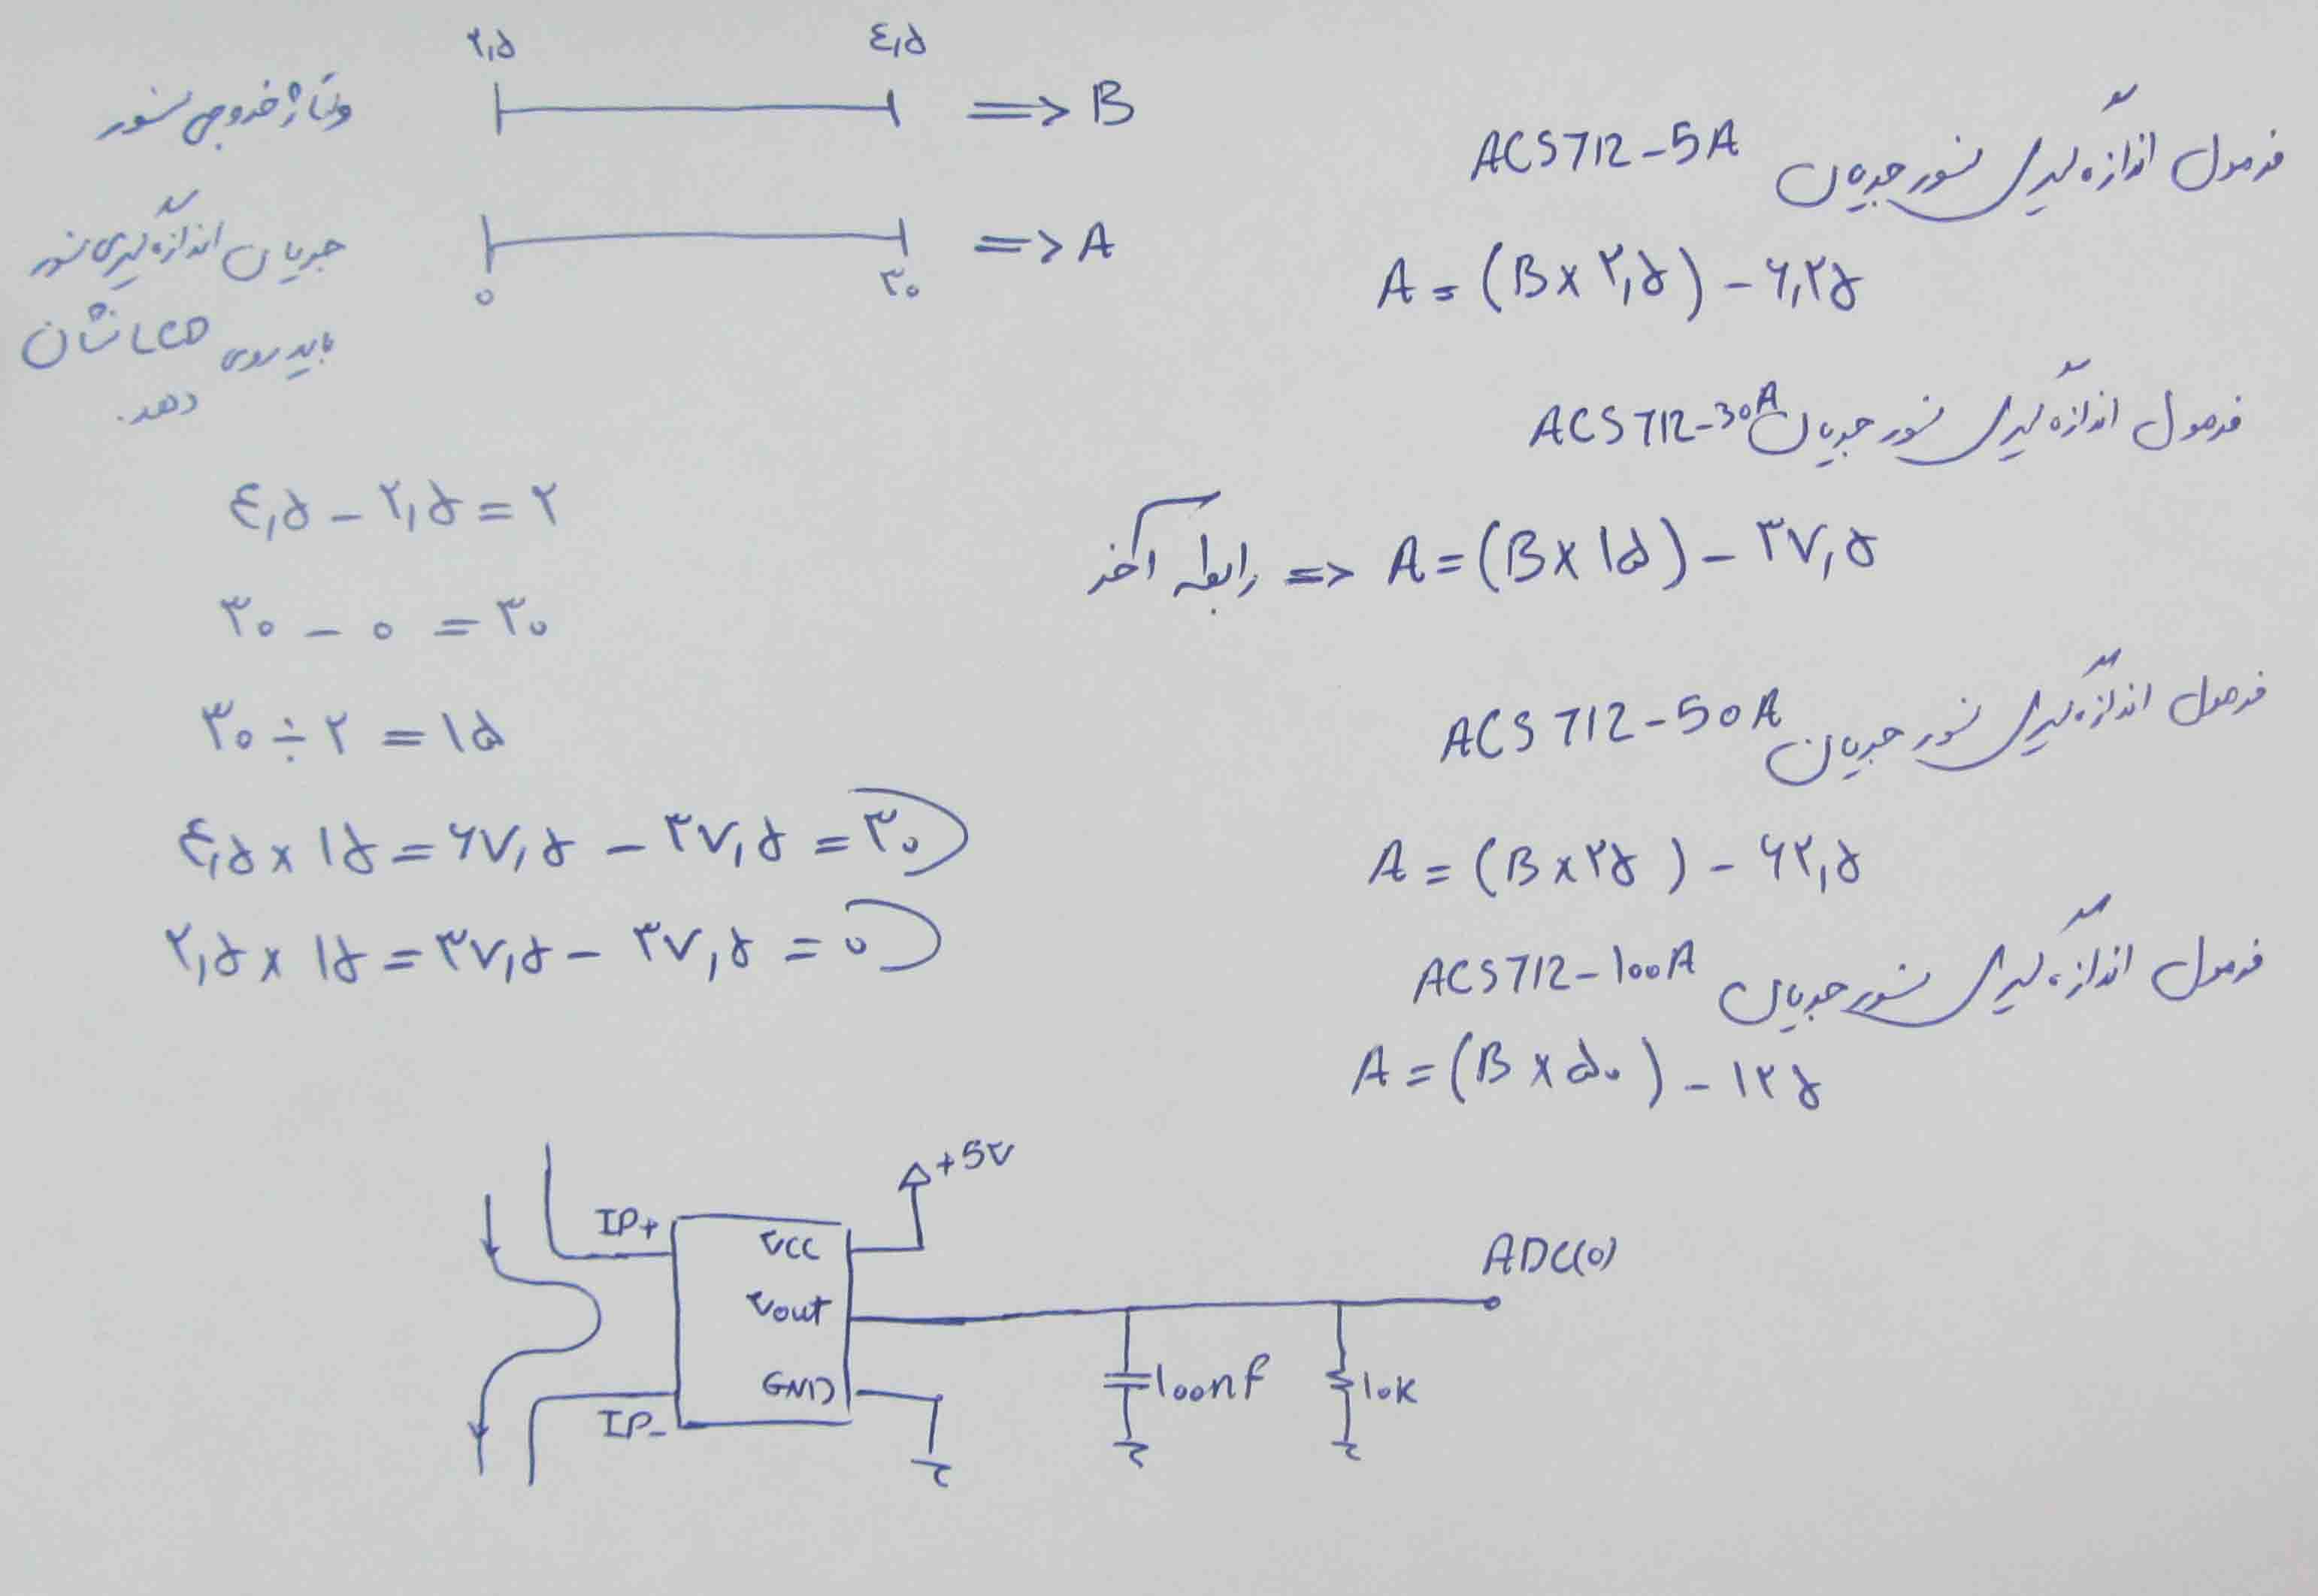 فرمول اندازه گیری سنسور جریان ACS712-5A
A = (B × ۲,۵) - ۶,۲۵
فرمول اندازه گیری سنسور جریان ACS712-30A
رابطه آخر <= A = (B × ۱۵) - ۳۷,۵
فرمول اندازه گیری سنسور جریان ACS712-50A
A = (B × ۲۵) - ۶۲,۵
فرمول اندازه گیری سنسور جریان ACS712-100A
A = (B × ۵۰) - ۱۲۵
۲,۵ ۴,۵
ولتاژ خروجی سنسور => B
جریان اندازه گیری سنسور => A
۰ ۳۰
باید روی نشان
دهد.
۴,۵ - ۲,۵ = ۲
۳۰ - ۰ = ۳۰
۳۰ ÷ ۲ = ۱۵
۴,۵ × ۱۵ = ۶۷,۵ - ۳۷,۵ = ۳۰
۲,۵ × ۱۵ = ۳۷,۵ - ۳۷,۵ = ۰
+5V
IP+
VCC
ADC(0)
Vout
GND
100nf
10K
IP-